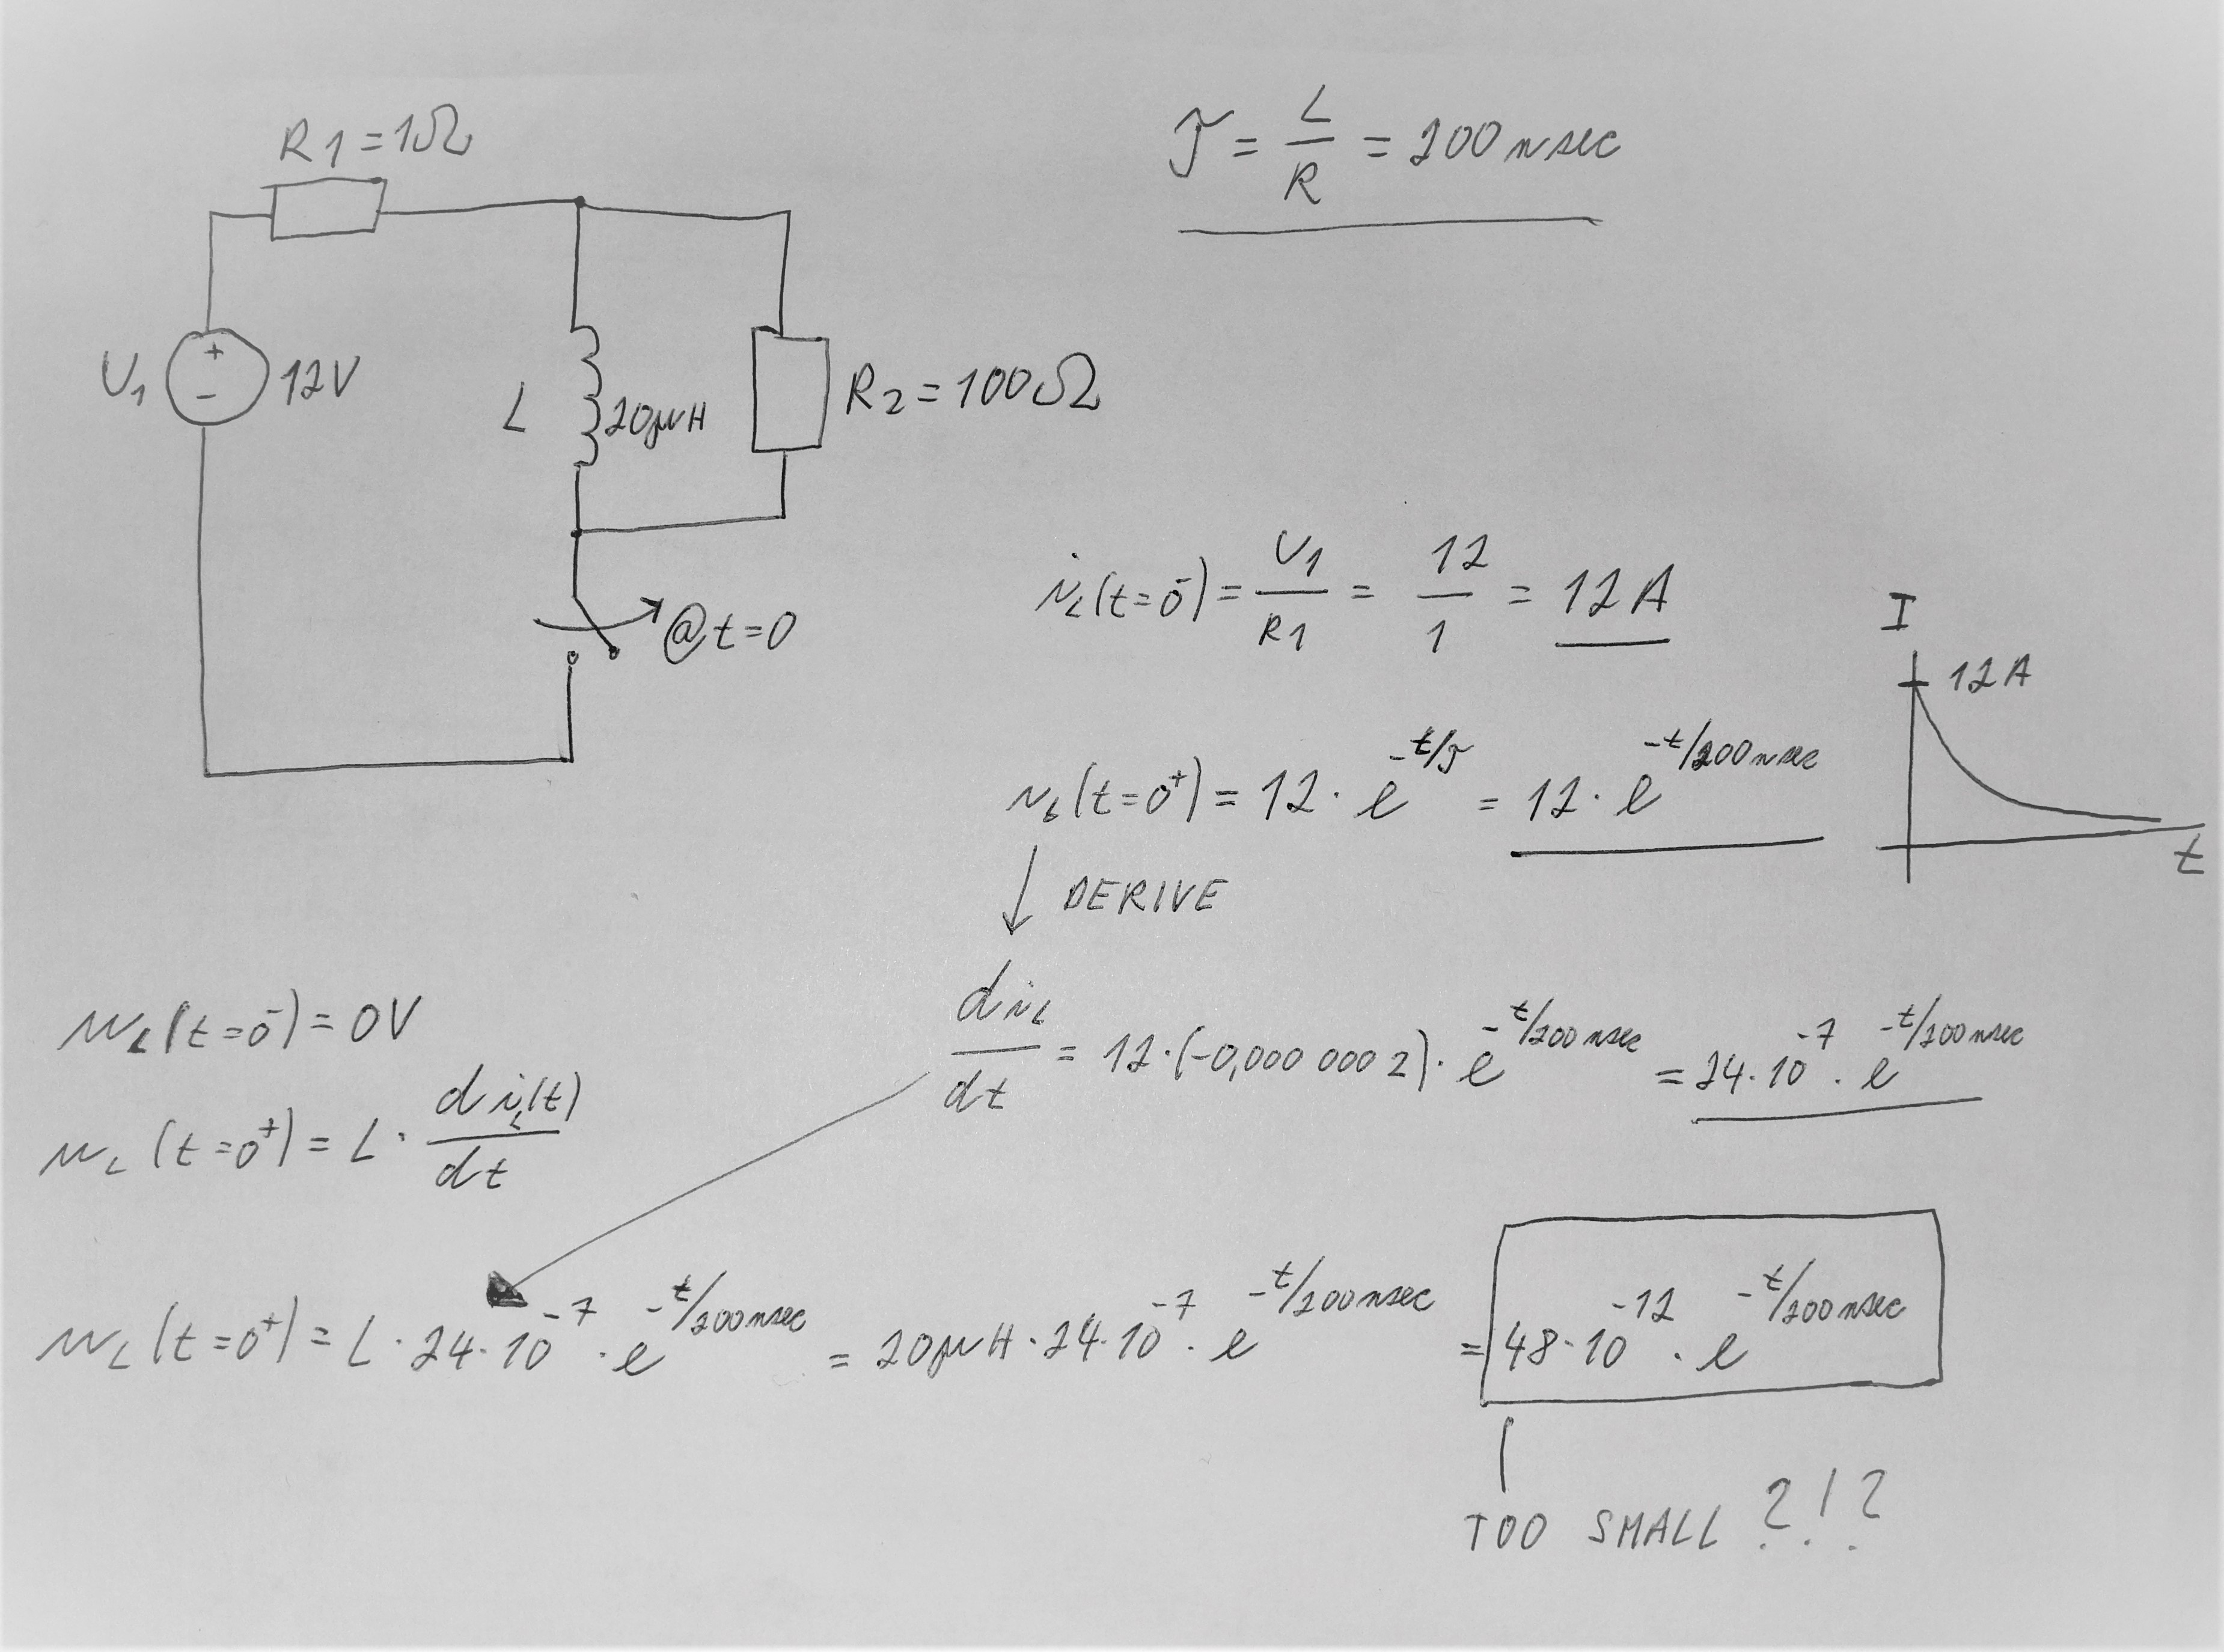 R1 = 1Ω
τ = L/R = 200 nsec
U₁ 12V
L 20μH
R₂ = 100Ω
@ t = 0
i_L(t=0⁻) = U1/R1 = 12/1 = 12 A
I
12 A
t
i_L(t=0⁺) = 12 · e^(-t/τ) = 12 · e^(-t/200nsec)
↓ DERIVE
di_L/dt = 12 · (-0,000 000 2) · e^(-t/200nsec) = 24 · 10^-7 · e^(-t/200nsec)
u_L(t=0⁻) = 0V
u_L(t=0⁺) = L · di_L(t)/dt
u_L(t=0⁺) = L · 24 · 10^-7 · e^(-t/200nsec) = 20μH · 24 · 10^-7 · e^(-t/200nsec) = 48 · 10^-12 · e^(-t/200nsec)
TOO SMALL ?!?